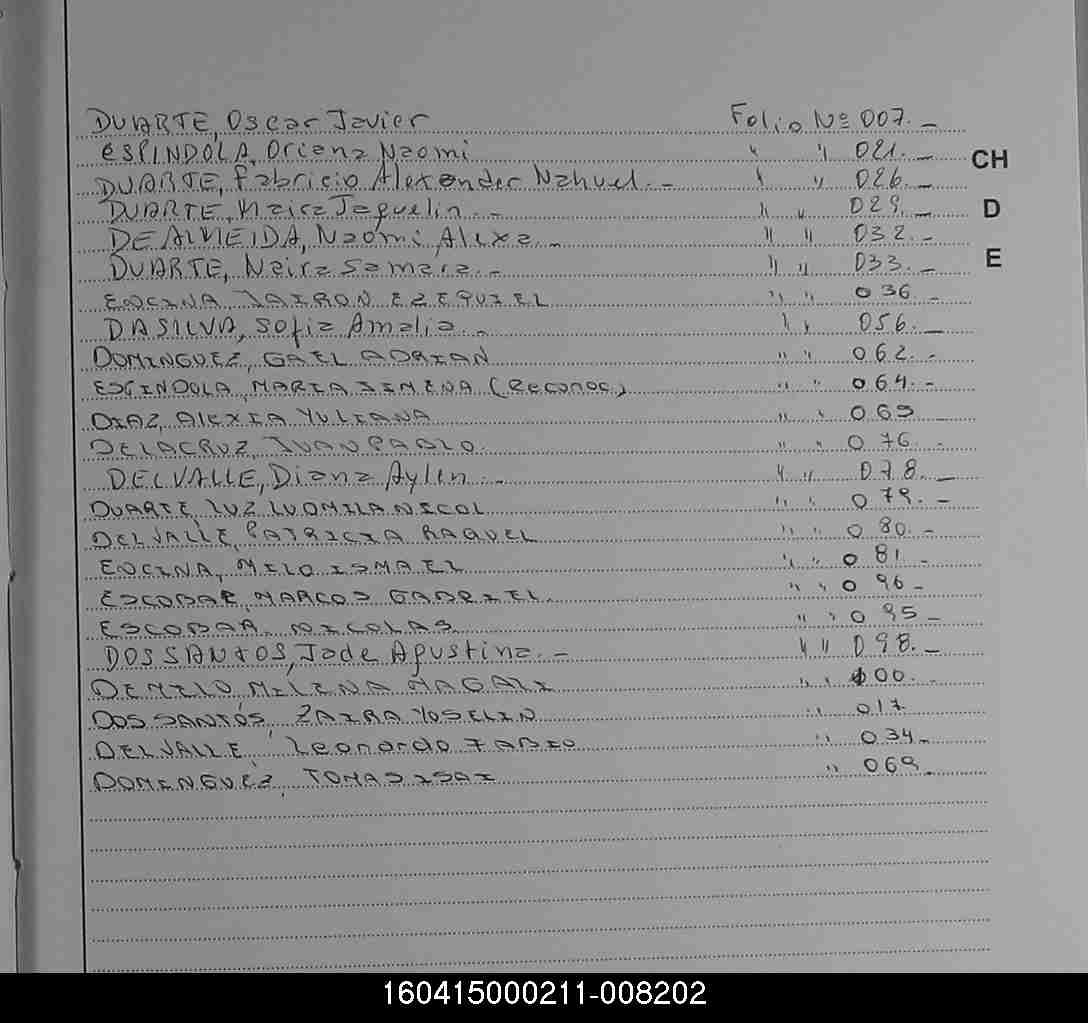 DUARTE, Oscar Javier Folio Nº 007.-
ESPINDOLA, Oriana Naomi " " 021.-
CH
DUARTE, Fabricio Alexander Nahuel.- " " 026.-
DUARTE, Naira Jaquelin.- " " 029.-
D
DE ALMEIDA, Naomi Alexa.- " " 032.-
DUARTE, Neira Samara.- " " 033.-
E
ENCINA JAIRON EZEQUIEL " " 036.-
DA SILVA, Sofia Amalia.- " " 056.-
DOMINGUEZ, GAEL ADRIAN " " 062.-
ESPINDOLA, MARIA JIMENA (Reconoc.) " " 064.-
DIAZ, ALEXIA YULIANA " " 069
DELACRUZ, JUAN PABLO. " " 076.-
DELVALLE, Diana Aylen.- " " 078.-
DUARTE, LUZ LUDMILA NICOL " " 079.-
DELVALLE, PATRICIA RAQUEL " " 080.-
ENCINA, MILO ISMAEL " " 081.-
ESCOBAR, MARCOS GABRIEL. " " 096.-
ESCOBAR, NICOLAS " " 095-
DOS SANTOS, Jade Agustina.- " " 098.-
DEMELO, MILENA MAGALI " " 100.-
DOS SANTOS, ZAIRA YOSELIN " 017
DELVALLE, Leonardo FABIO " 034-
DOMINGUEZ, TOMAS ISAI " 069-
160415000211-008202